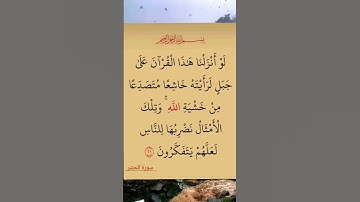 بسم الله الرحمن الرحيم
لَوْ أَنْزَلْنَا هَذَا الْقُرْآنَ عَلَىٰ
جَبَلٍ لَرَأَيْتَهُ خَاشِعًا مُتَصَدِّعًا
مِنْ خَشْيَةِ اللَّهِ ۚ وَتِلْكَ
الْأَمْثَالُ نَضْرِبُهَا لِلنَّاسِ
لَعَلَّهُمْ يَتَفَكَّرُونَ ﴿٢١﴾
سورة الحشر